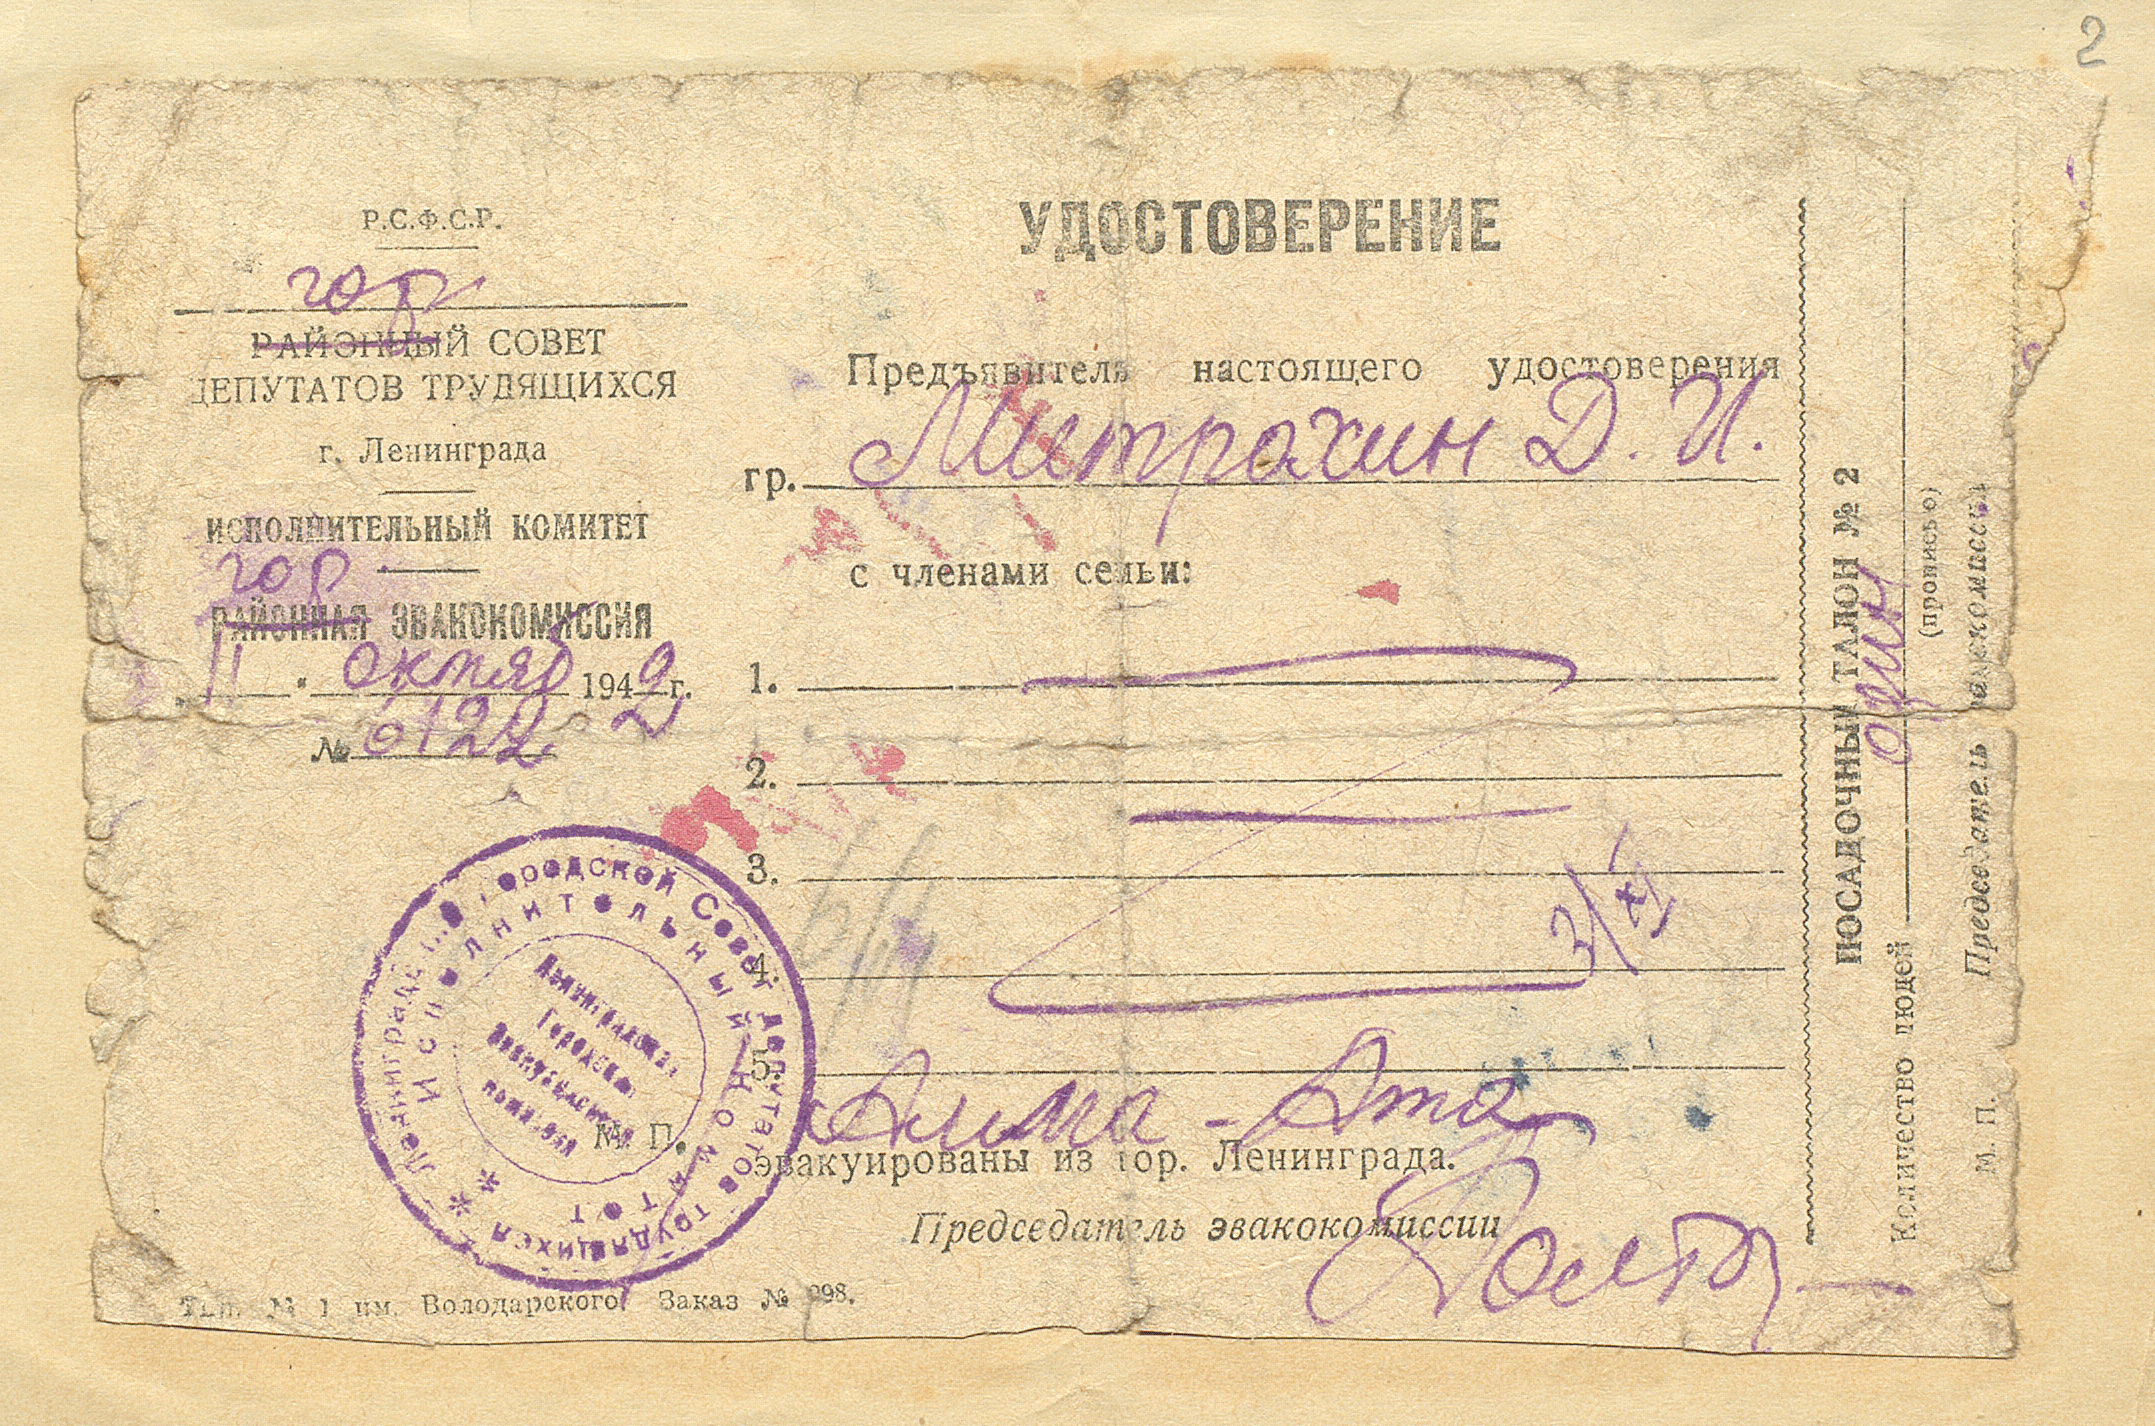 2
Р.С.Ф.С.Р.
гор
РАЙОННЫЙ СОВЕТ
ДЕПУТАТОВ ТРУДЯЩИХСЯ
г. Ленинграда
ИСПОЛНИТЕЛЬНЫЙ КОМИТЕТ
гор.
РАЙОННАЯ ЭВАКОКОМИССИЯ
11 " октяб 1942 г.
2
№ 6122
Ленинградский Городской Совет депутатов трудящихся
Исполнительный Комитет
Ленинградская
Городская
Эвакуационная
комиссия
М. П.
Тип. № 1 им. Володарского. Заказ №
УДОСТОВЕРЕНИЕ
Предъявитель настоящего удостоверения
гр. Митрохин Д. И.
с членами семьи:
1.
2.
3.
4.
3/XI
5.
Алма-Ата
эвакуированы из гор. Ленинграда.
Председатель эвакокомиссии
ПОСАДОЧНЫЙ ТАЛОН № 2
Количество людей один
(прописью)
Председатель эвакокомиссии
М. П.